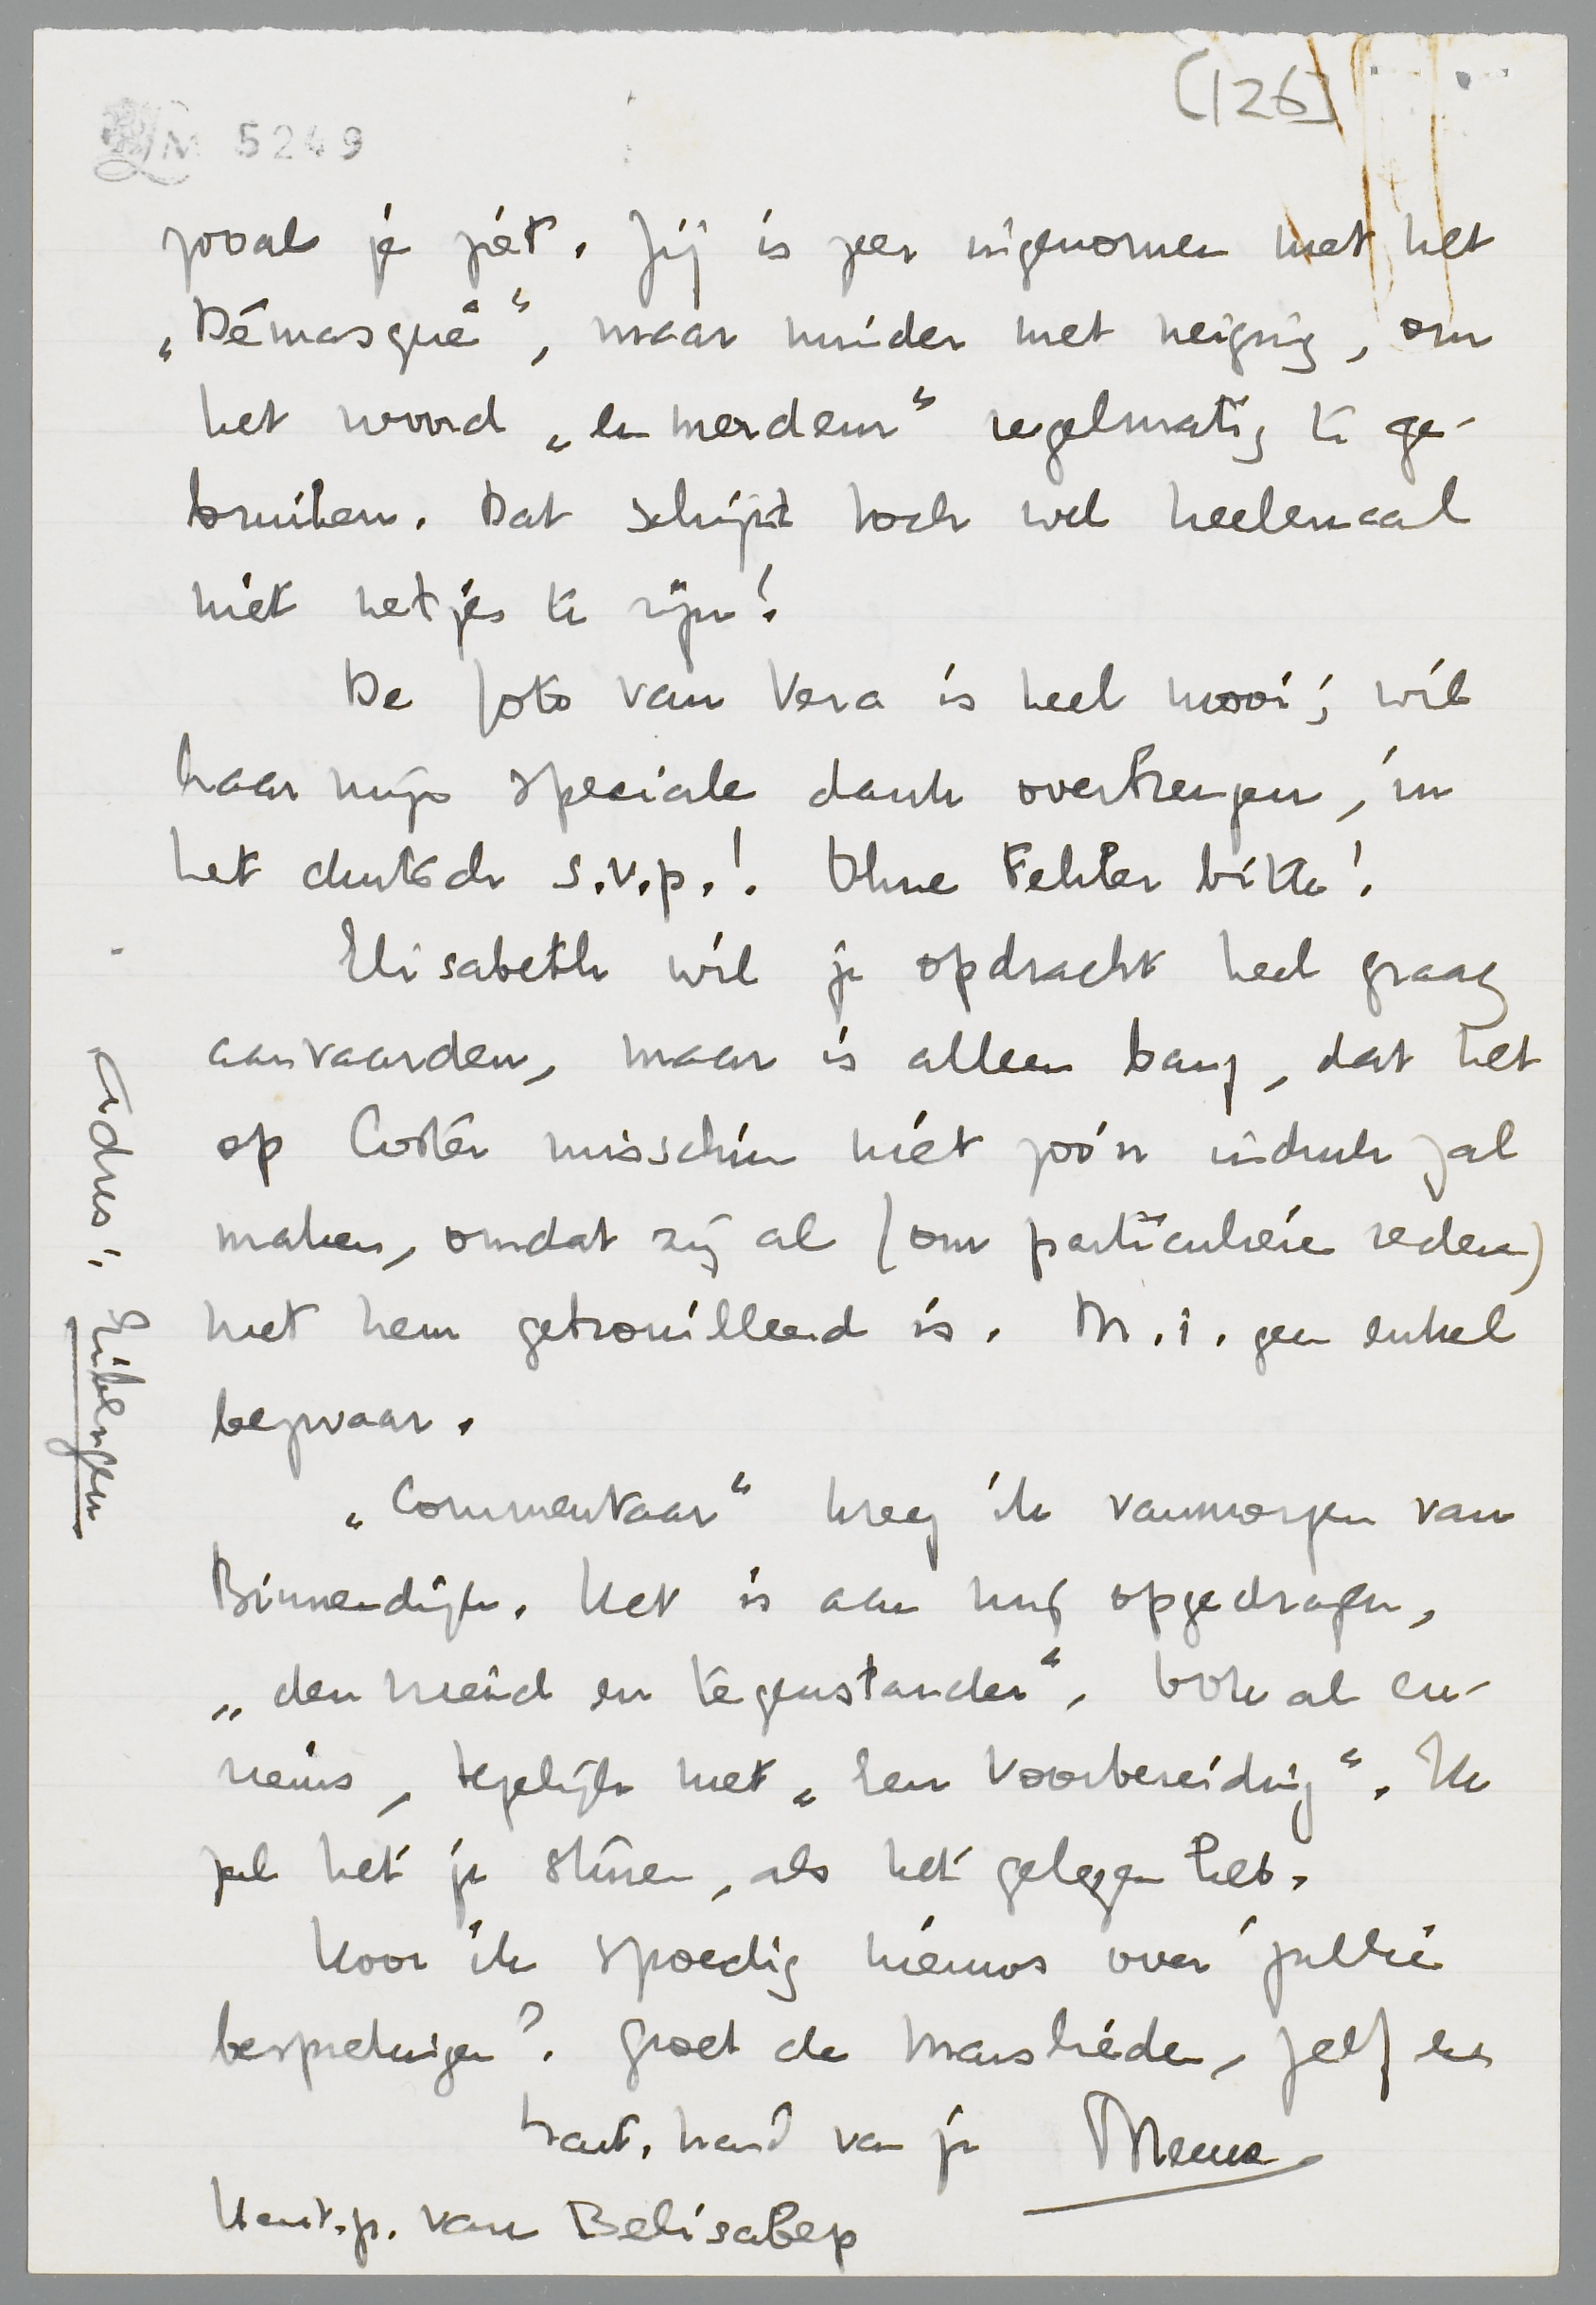 LM 5249
(126)
zooals je ziet. Zij is zeer ingenomen met het
„Démasqué“, maar minder met neiging, om
het woord „emmerdeur“ regelmatig te ge-
bruiken. Dat schijnt toch wel heelemaal
niet netjes te zijn!
De foto van Vera is heel mooi; wil
haar mijn speciale dank overbrengen, in
het duitsch s.v.p.! Ohne Fehler bitte!
Elisabeth wil je opdracht heel graag
aanvaarden, maar is alleen bang, dat het
op Coster misschien niet zoo'n indruk zal
maken, omdat zij al (om particuliere reden)
met hem gebrouilleerd is. M.i. geen enkel
bezwaar.
„Commentaar“ kreeg ik vanmorgen van
Binnendijk. Het is aan mij opgedragen,
„den vriend en tegenstander“. Ook al cu-
rieus, tegelijk met „Een Voorbereiding“. Ik
zal het je sturen, als ik het gelezen heb.
Hoor ik spoedig nieuws over jullie
besprekingen? Groet de Marslieden, zelf een
hart. hand van je Menno
Hart. gr. van Belisabep
Adres: Eibergen